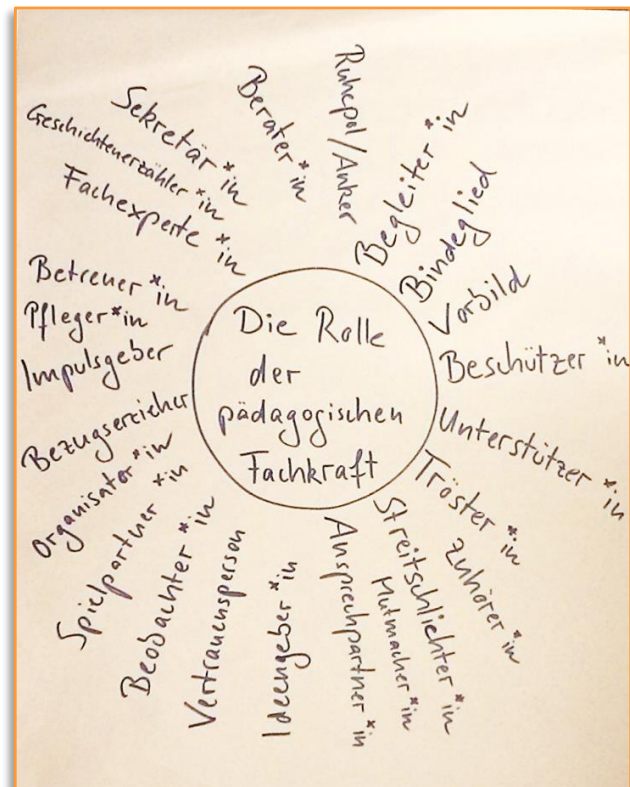 Die Rolle
der
pädagogischen
Fachkraft
Ruhepol/Anker
Begleiter*in
Bindeglied
Vorbild
Beschützer*in
Unterstützer*in
Tröster*in
Zuhörer*in
Streitschlichter*in
Mutmacher*in
Ansprechpartner*in
Ideengeber*in
Vertrauensperson
Beobachter*in
Spielpartner*in
Organisator*in
Bezugserzieher
Impulsgeber
Pfleger*in
Betreuer*in
Fachexperte*in
Geschichtenerzähler*in
Sekretär*in
Berater*in